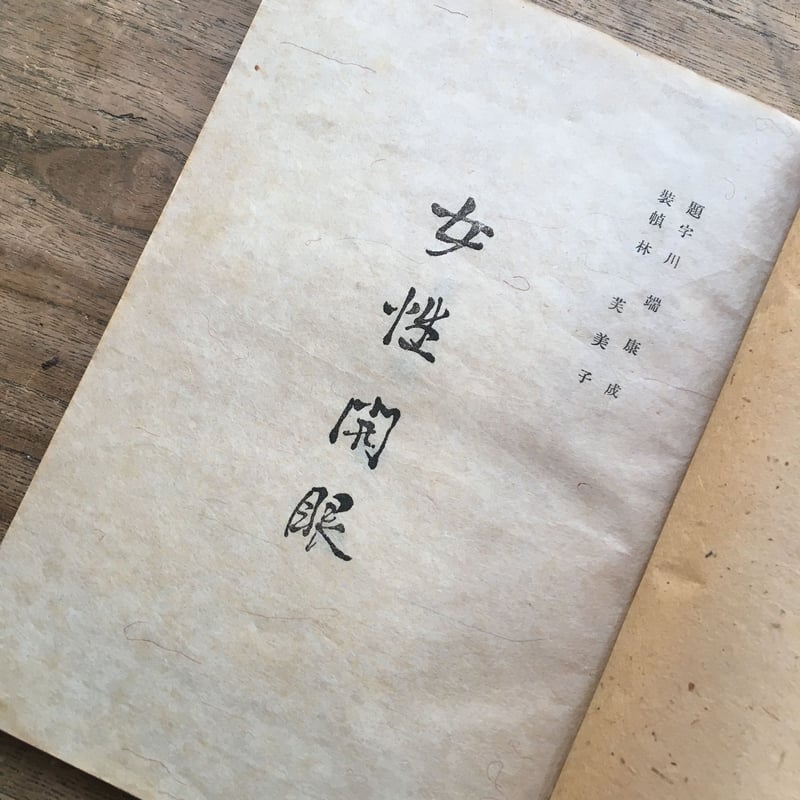 題字 川端康成
裝幀 林芙美子
女性開眼